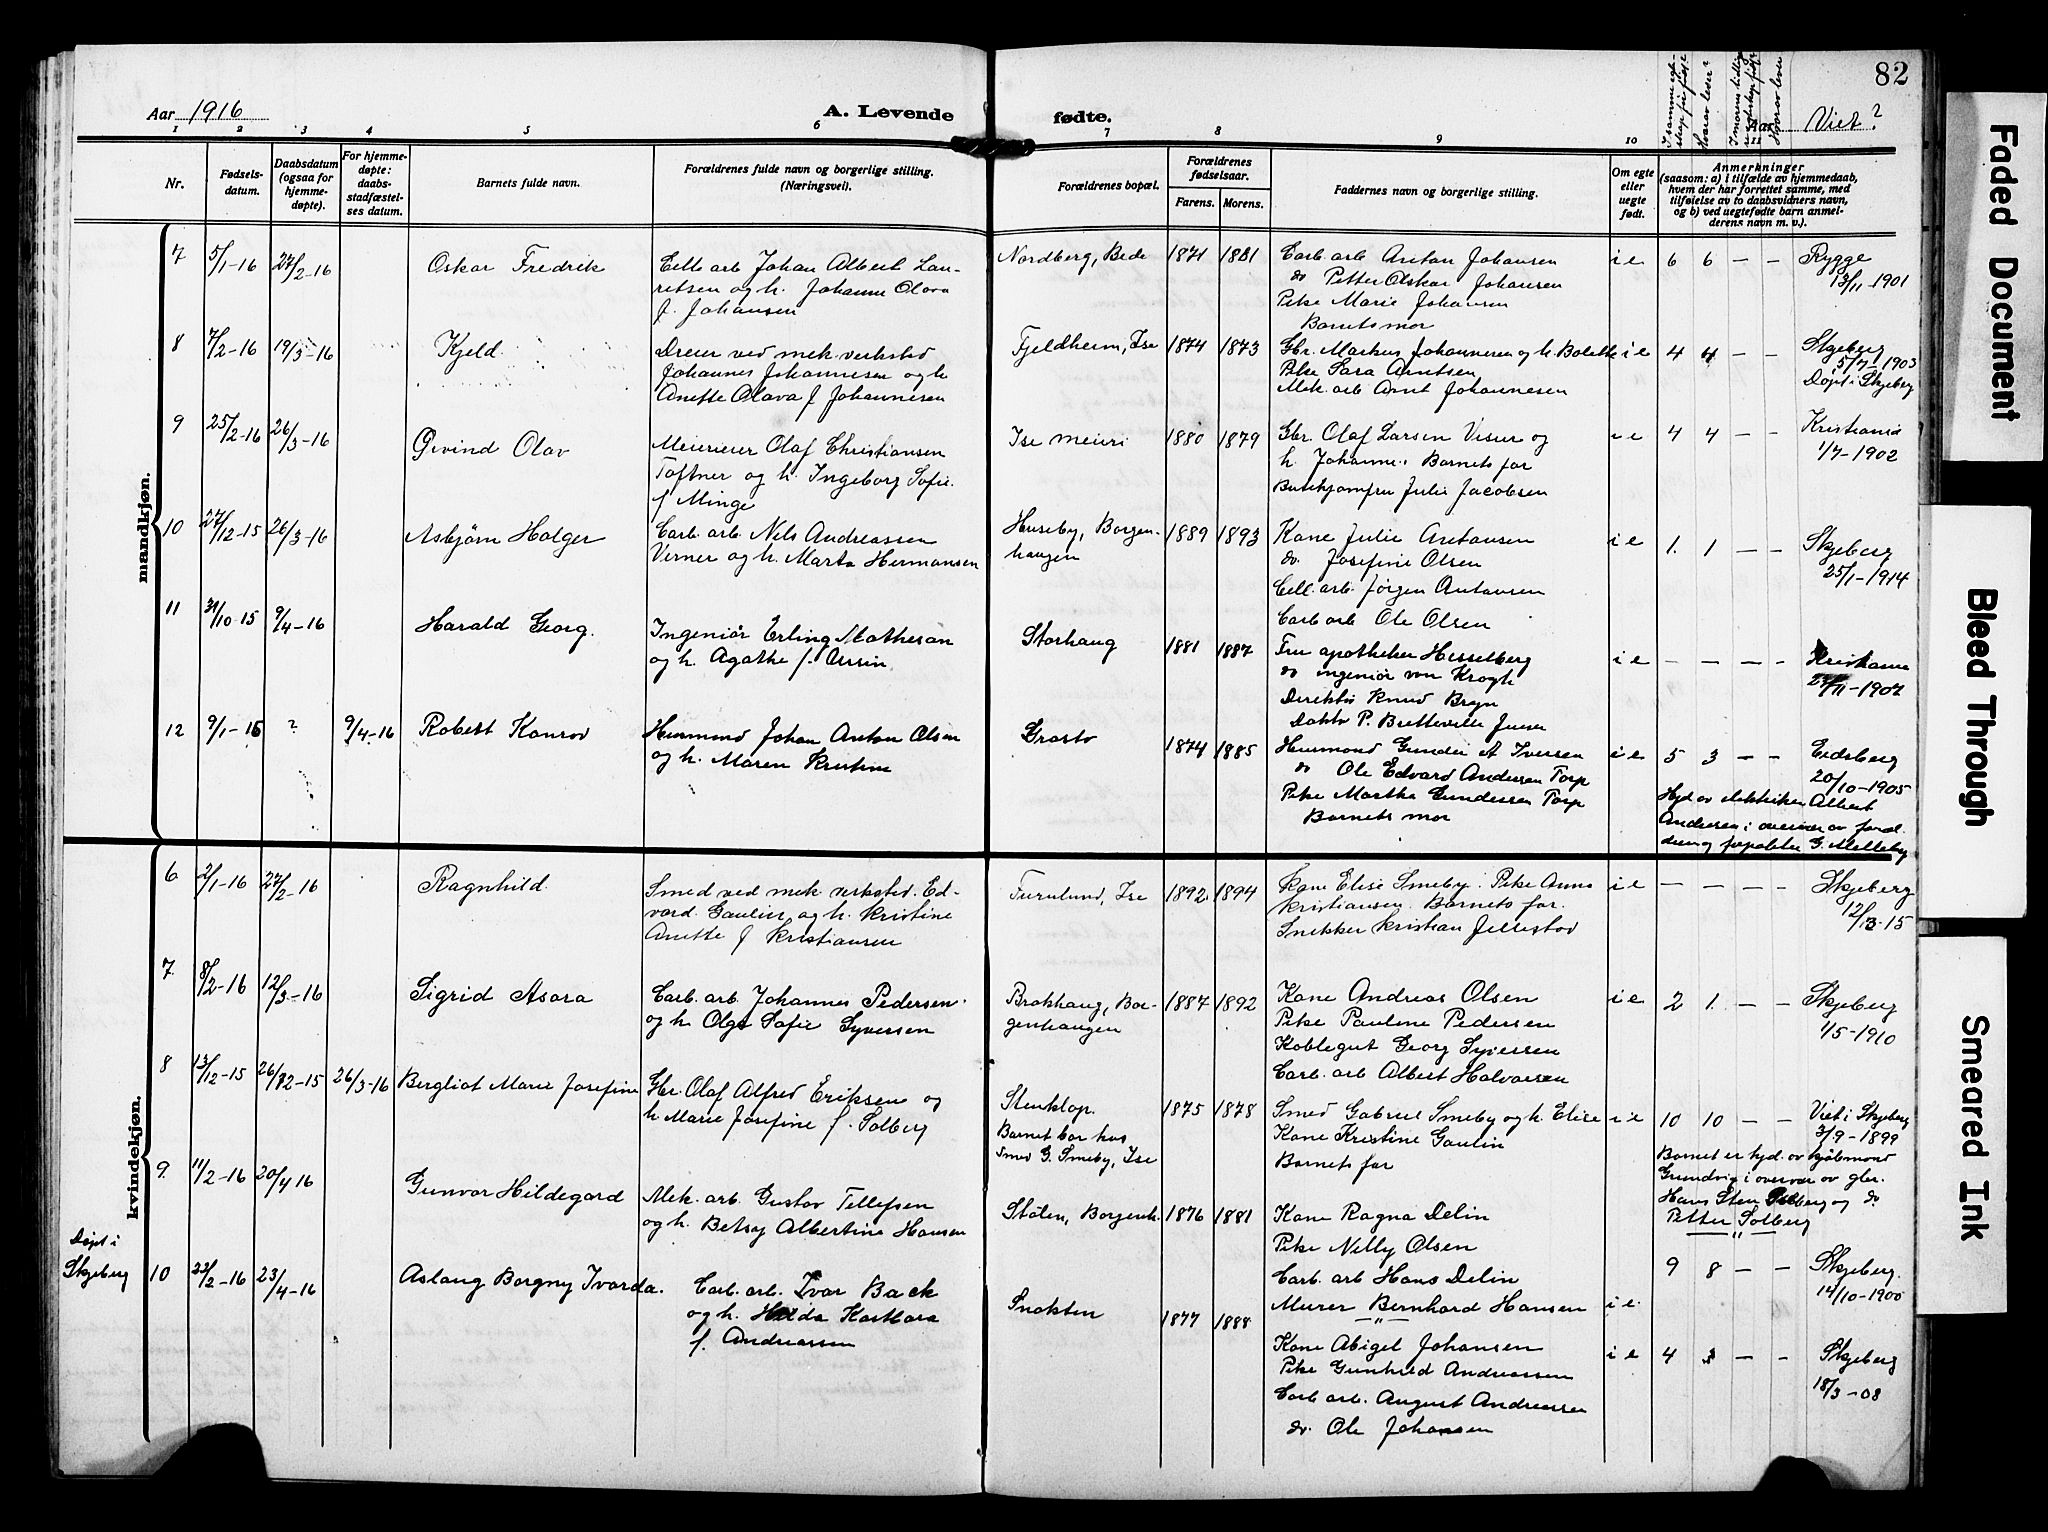 82
Aar 1916
A. Levende fødte.
Viet?
1 2 3 4 5 6 7 8 9 10 11
Nr.
Fødsels-
datum.
Daabsdatum
(ogsaa for
hjemme-
døpte).
For hjemme-
døpte:
daabs-
stadfæstel-
ses datum.
Barnets fulde navn.
Forældrenes fulde navn og borgerlige stilling.
(Næringsvei).
Forældrenes bopæl.
Forældrenes
fødselsaar.
Farens. Morens.
Faddernes navn og borgerlige stilling.
Om egte
eller
uegte
født.
Anmerkninger
(saasom: a) i tilfælde av hjemmedaab,
hvem der har forrettet samme, med
tilføielse av to daabsvidners navn,
og b) ved uegtefødte barn anmel-
derens navn m. v.).
mandkjøn.
7 5/1-16 27/2-16 Oskar Fredrik
Cell. arb Johan Albert Lau-
ritsen og h. Johanne Olava
f. Johansen
Nordberg, Bede 1871 1881
Carb arb Anton Johansen
do Petter Oskar Johansen
Pike Marie Johansen
Barnets mor
i e 6 6 — — Rygge
13/11-1901
8 7/2-16 19/3-16 Kjeld
Dreier ved mek. verksted
Johannes Johannesen og h.
Anette Olava f. Johannesen
Fjeldheim, Ise 1874 1873
Gbr. Markus Johannesen og h. Bolette
Pike Sara Arntsen
Mek. arb Arnt Johannesen
i e 4 4 — — Skjeberg
5/7-1903
Døpt i Skjeberg
9 25/2-16 26/3-16 Øivind Olav
Meierieier Olaf Christiansen
Toftner og h. Ingeborg Sofie
f. Minge
Ise meieri 1880 1879
Gbr. Olaf Larsen Visur og
h. Johanne. Barnets far
Butikjomfru Julie Jacobsen
i e 4 4 — — Kristiania
1/7-1902
10 27/12-15 26/3-16 Asbjørn Holger
Carb. arb. Nils Andreassen
Verner og h. Marta Hermansen
Huseby, Borgen-
haugen 1889 1893
Kone Julie Antonsen
do. Josefine Olsen
Cell. arb. Jørgen Antonsen
Carb arb Ole Olsen
i e 1. 1 — — Skjeberg
25/1-1914
11 31/10-15 9/4-16 Harald Georg.
Ingeniør Erling Mathesan
og h. Agathe f.
Storhaug 1881 1887
Fru apotheker Hesselberg
do ingeniør von Krogh
Direktør Knud Bryn
Doktor P. Bretteville Jensen
i e — — — — Kristiania
12 9/1-16 ? 9/4-16 Robert Konrod
Husmand Johan Anton Olsen
og h. Maren Kristine
Grasto 1874 1885
Husmand Gunder A Iversen
do Ole Edvard Andersen Torp
Pike Martha Gundersen Torp
Barnets mor
i e 5 3 — — Eidsberg
20/10-1905
Hjd. av elektriker Albert
Andersen i overvær av foræl-
dren og G. Melleby
kvindekjøn.
6 2/1-16 27/2-16 Ragnhild.
Smed ved mek. verksted. Ed-
vard Gaulin og h. Kristine
Anette f Kristiansen
Furulund, Ise 1892 1894
Kone Elise Smeby. Pike Anna
Kristiansen. Barnets far.
Snekker Kristian Jellestad
i e — — — — Skjeberg
7. 8/2-16 12/3-16 Sigrid Asora
Carb. arb. Johannes Pedersen
og h. Olga Sofie Syversen
Brokhaug, Bor-
genhaugen 1887 1892
Kone Andreas Olsen
Pike Pauline Pedersen
Koblegut Georg Syversen
Carb. arb Albert Halvorsen
i e 2 1. — — Skjeberg
1/5-1910
8 13/12-15 26/12-15 26/3-16 Bergliot Marie Josefine
Gbr. Olaf Alfred Eriksen og
h Marie Josefine f. Solberg
Stenklop.
Barnet bor hos
smed G. Smeby, Ise 1875 1878
Smed Gabriel Smeby og h. Elise
Kone Kristine Gaulin
Barnets far
i e 10 10 — — Viet i Skjeberg
3/9-1899
Barnet er hjd. av hjelpemand
Grundvig i overvær av gbr.
Hans Sten Solberg og do
Petter Solberg
9. 11/2-16 20/4 16 Gunvor Hildegard
Mek. arb Gustav Tellefsen
og h. Betsy Albertine Hansen
Stølen, Borgenh. 1876 1881
Kone Ragna Delin
Pike Nelly Olsen
Carb. arb Hans Delin
Murer Bernhard Hansen
i e. 9 8 — — Skjeberg.
14/10-1900
Døpt i
Skjeberg
10 22/2-16 23/4-16 Aslaug Borgny Ivarda.
Carb. arb. Ivar Back
og h. Hilda Kathara
f. Andreassen
Snoksten 1877 1888
Kone Abigel Johansen
Pike Gunhild Andreassen
Carb. arb. August Andreassen
do. Ole Johansen
i e 4 3 — — Skjeberg
18/3-08
Faded Document
Bleed Through
Smeared Ink